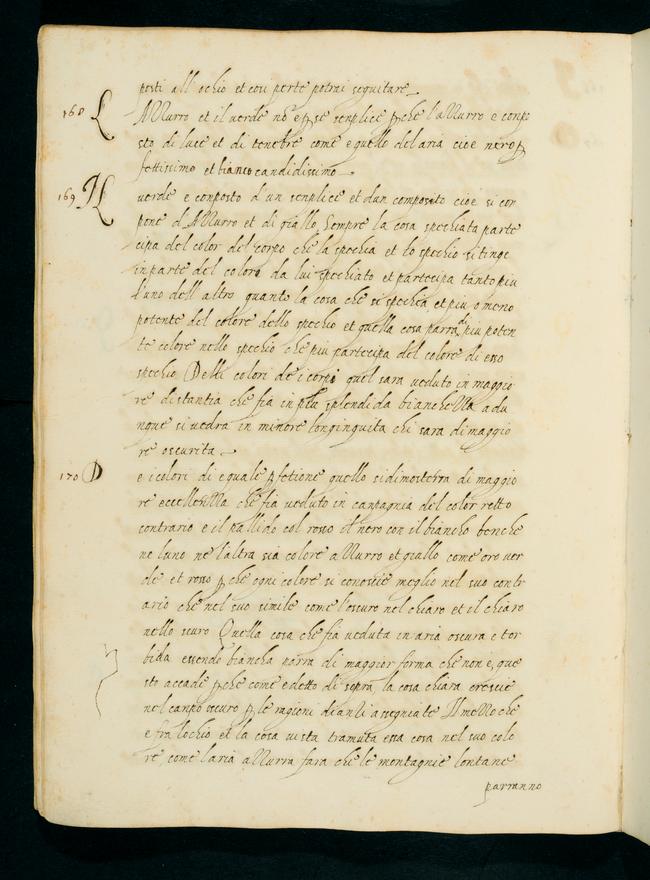 posti all ochio et cosi perte potrai seguitare
168 L
AZZurro et il verde nō e p se senplice p che l'aZZurro e conpo
sto di luce et di tenebre come e quello del aria cioe nero p
fettissimo et bianco candidissimo
169 Il
verde e conposto d'un senplice et d'un composito cioe si con
pone d'AZZurro et di giallo, Sempre la cosa spechiata parte
cipa del color del corpo che la spechia et lo spechio si tinge
in parte del colore da lui spechiato et partecipa tanto piu
l'uno dell altro quanto la cosa che si spechia, et piu o meno
potente del colore dello spechio et quella cosa parra di piu poten
te colore nello spechio che piu partecipa del colore di esso
spechio Delli colori de i corpi quel sara veduto in maggio
re distantia che fia in piu splendida biancheZZa adu
nque si vedra in minore longinguita chi sara di maggio
re oscurita
170 D
e i colori di equale pfetione quello si dimosterra di maggio
re eccelleZZa che fia veduto in canpagnia del color retto
contrario e il pallido col rosso il nero con il biancho benche
ne luno ne l'altra sia colore aZZurro et giallo come oro ver
de et rosso p che ogni colore si conoscie meglio nel suo contr
ario che nel suo simile come l'oscuro nel chiaro et il chiaro
nello scuro Quella cosa che fia veduta in aria oscura e tor
bida essendo biancha parra di maggior forma che non e, que
sto accade p che come e detto di sopra, la cosa chiara crescie
nel canpo oscuro p le ragioni dianZi asegniate Il meZZo che
e fra lochio et la cosa vista tramuta essa cosa nel suo colo
re, come l'aria aZZurra fara che le montagnie lontane
parranno